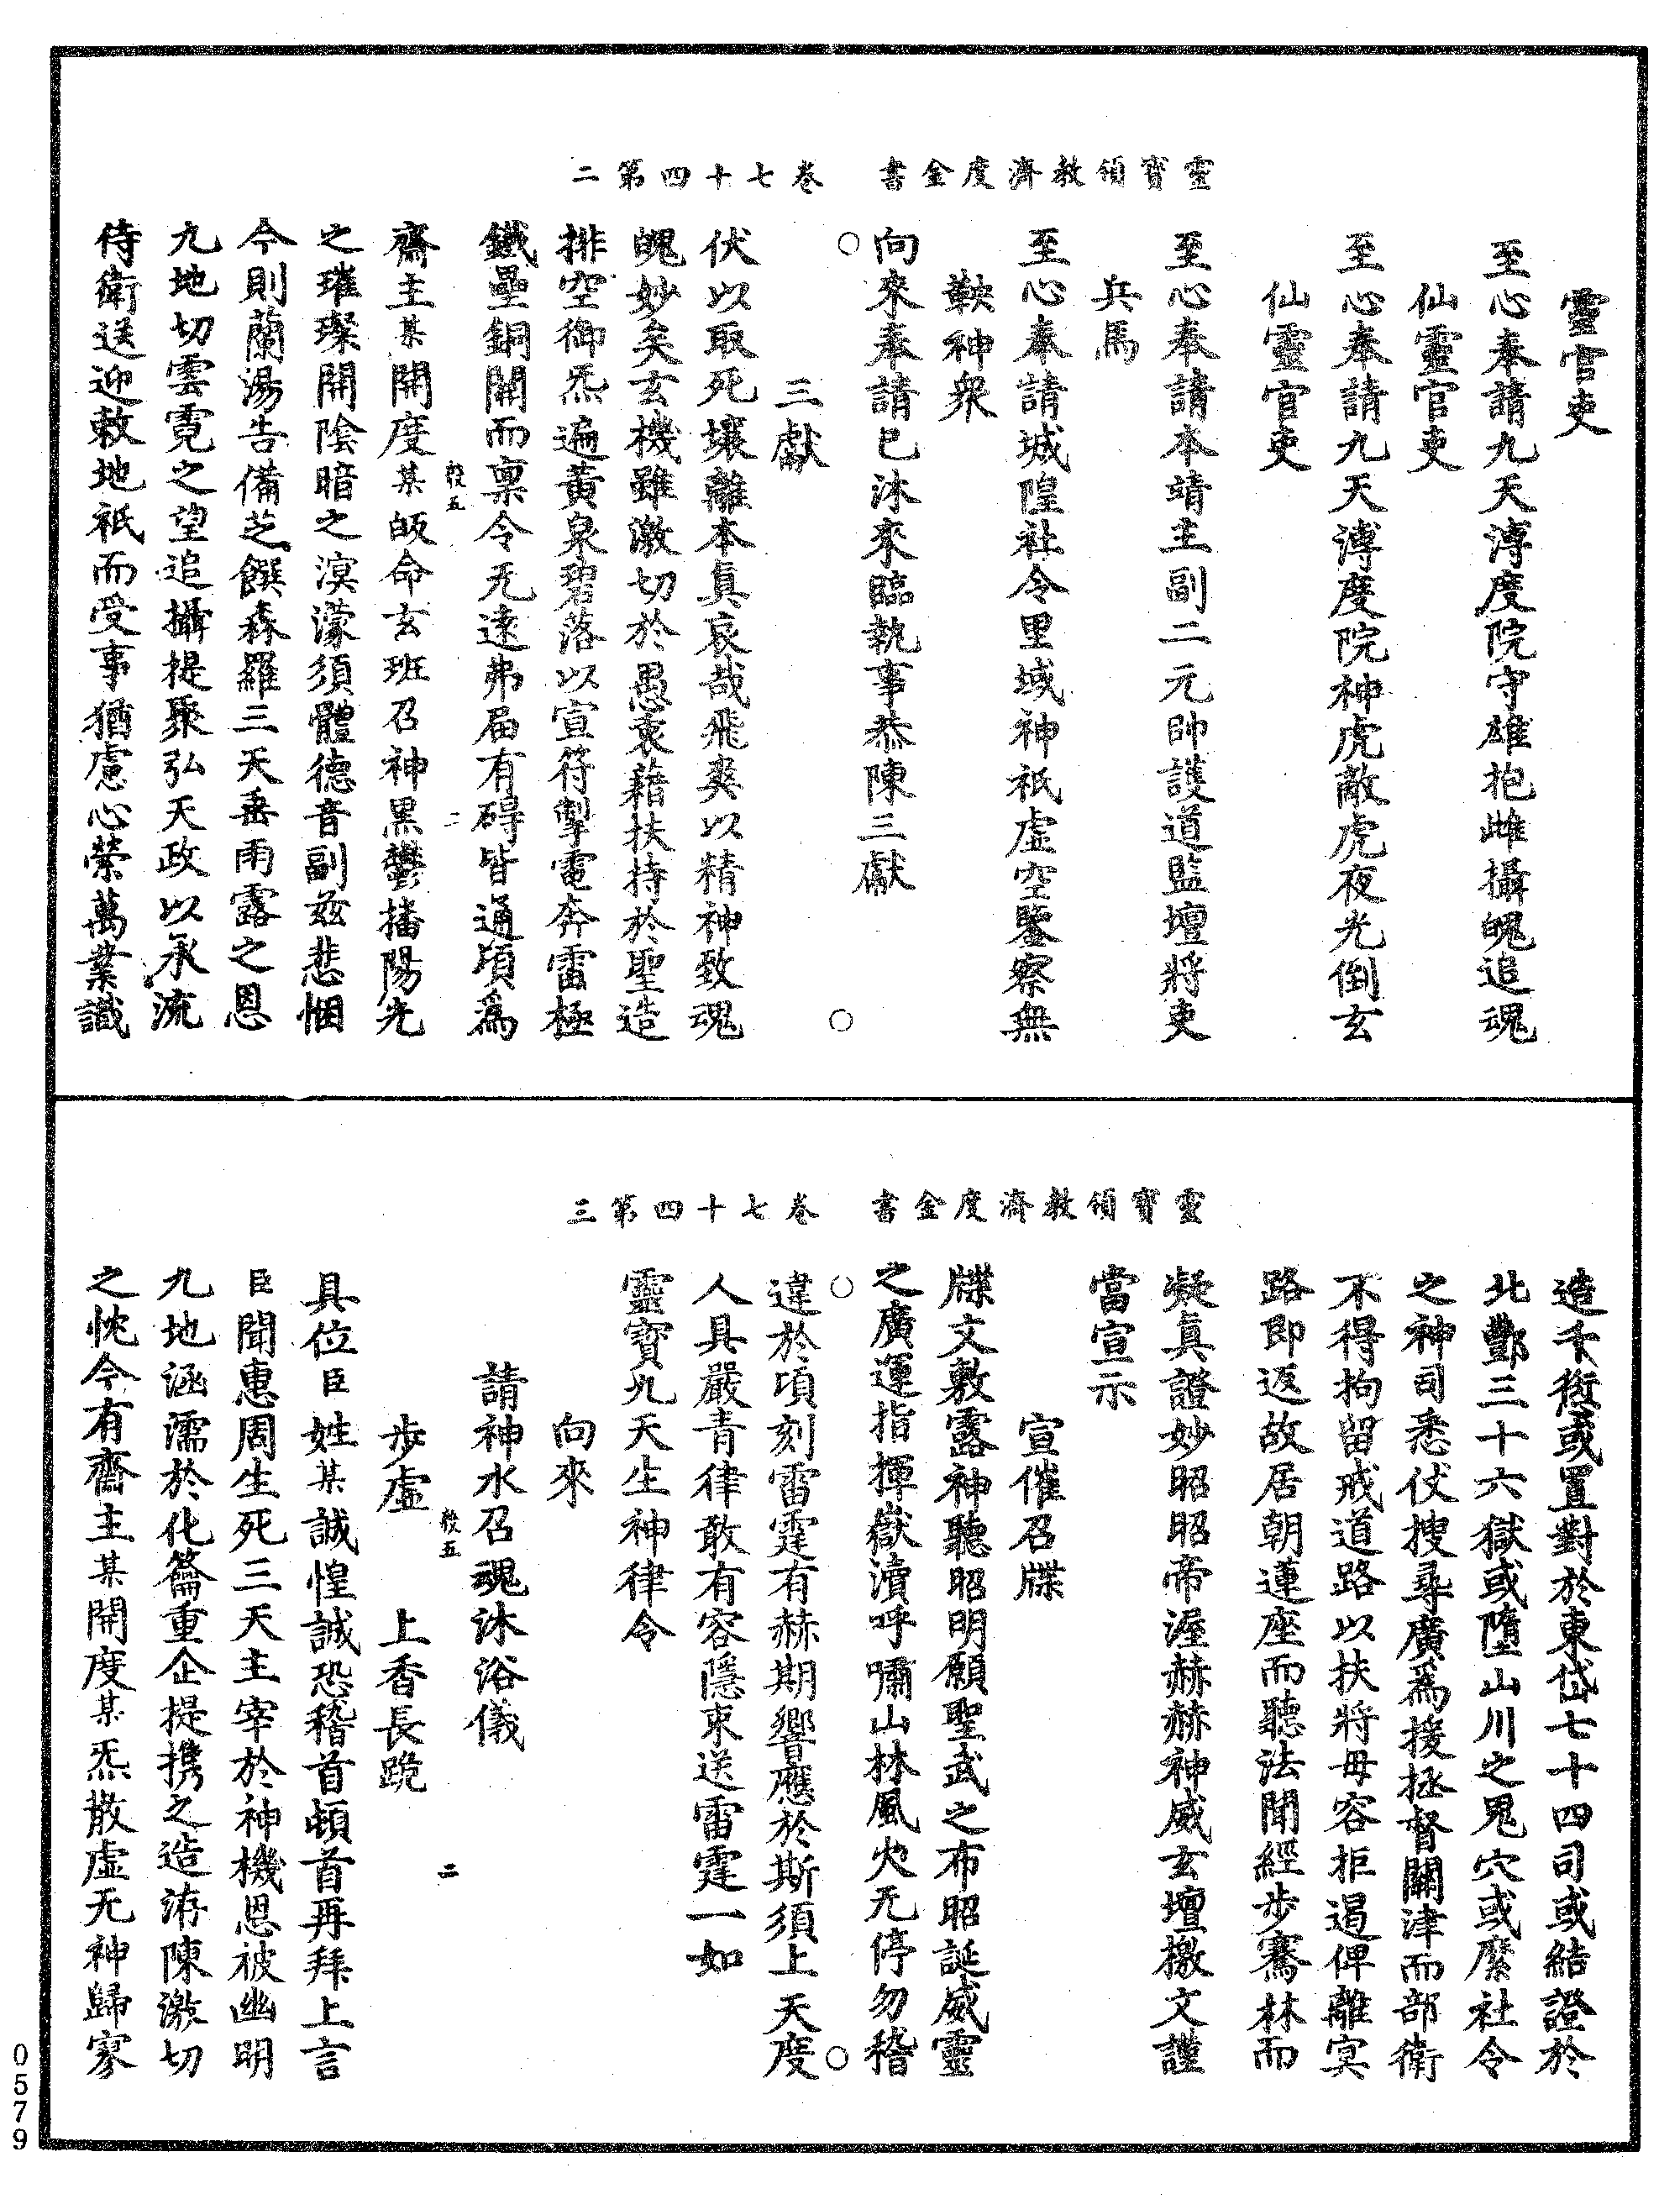 靈寶領教濟度金書　卷七十四第二
靈官吏
至心奉請九天溥度院守雄抱雌攝魄追魂
仙靈官吏
至心奉請九天溥度院神虎敵虎夜光倒玄
仙靈官吏
至心奉請本靖主副二元帥護道監壇將吏
兵馬
至心奉請城隍社令里域神祇虛空鑒察無
鞅神衆
向來奉請已沐來臨執事恭陳三獻
○　○
三獻
伏以取死壞離本真哀哉飛爽以精神致魂
魄妙矣玄機雖激切於愚衷藉扶持於聖造
排空御炁遍黃泉碧落以宣符掣電奔雷極
鐵壘銅關而禀令无遠弗届有碍皆通頃爲
殺五　二
齋主某開度某皈命玄班召神黑鬱播陽光
之璀璨開陰暗之溟濛須體德音副兹悲悃
今則蘭湯告備芝饌森羅三天垂雨露之恩
九地切雲霓之望追攝提聚弘天政以承流
待衛送迎敕地祇而受事猶慮心縈萬業識
靈寶領教濟度金書　卷七十四第三
造千愆或置對於東岱七十四司或結證於
北酆三十六獄或墮山川之鬼穴或縻社令
之神司悉仗搜尋廣爲接拯督關津而部衛
不得拘留戒道路以扶將毋容拒遏俾離冥
路即返故居朝蓮座而聽法聞經步騫林而
凝真證妙昭昭帝渥赫赫神威玄壇檄文謹
當宣示
宣催召牒
牒文敷露神聽昭明願聖武之布昭誕威靈
之廣運指揮嶽瀆呼嘯山林風火无停勿稽
○　○
違於頃刻雷霆有赫期響應於斯須上天度
人具嚴青律敢有容隱束送雷霆一如
靈寶九天生神律令
向來
請神水召魂沐浴儀
殺五　二
步虛　上香長跪
具位臣姓某誠惶誠恐稽首頓首再拜上言
臣聞惠周生死三天主宰於神機恩被幽明
九地涵濡於化籥重企提携之造洊陳激切
之忱今有齋主某開度某炁散虛无神歸寥
0579